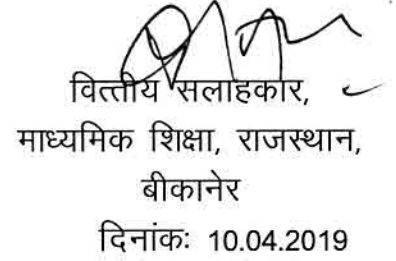 वित्तीय सलाहकार,
माध्यमिक शिक्षा, राजस्थान,
बीकानेर
दिनांकः 10.04.2019